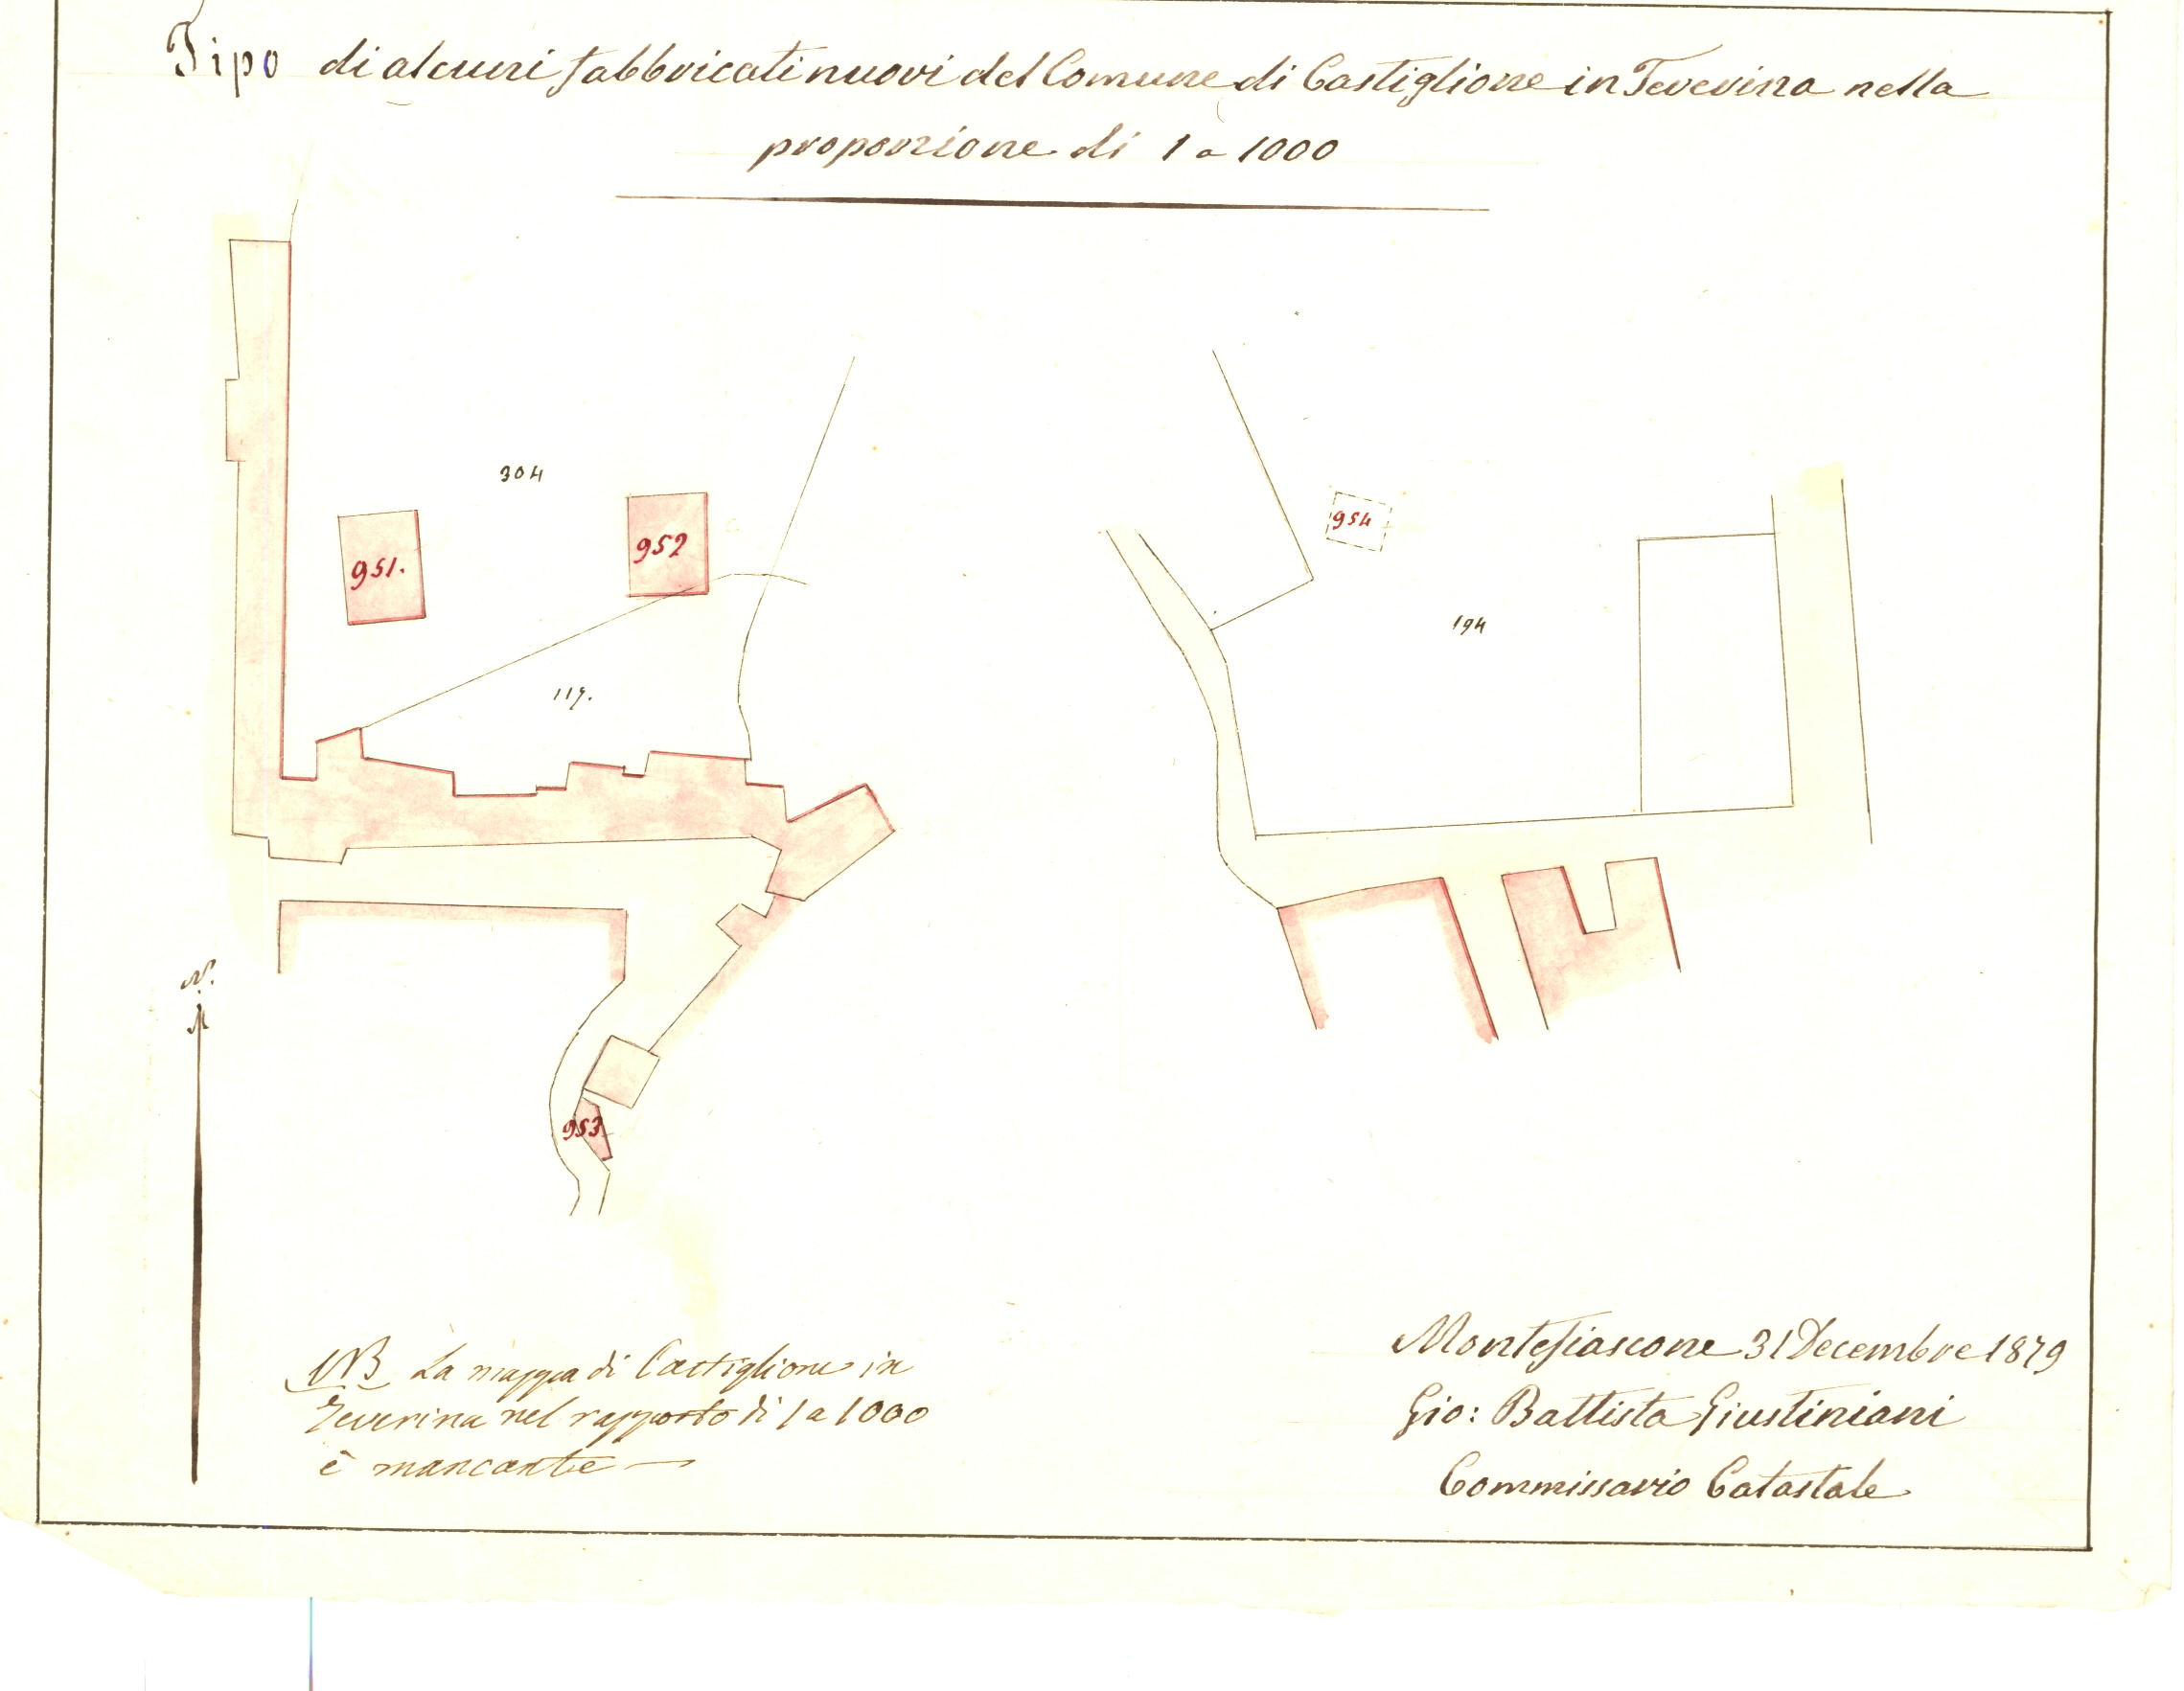 Tipo di alcuni fabbricati nuovi del Comune di Castiglione in Teverina nella
proporzione di 1 a 1000
304
951.
952
954
194
119.
N.
953
NB La mappa di Castiglione in
Teverina nel rapporto di 1 a 1000
è mancante —
Montefiascone 31 Decembre 1879
Gio: Battista Giustiniani
Commissario Catastale